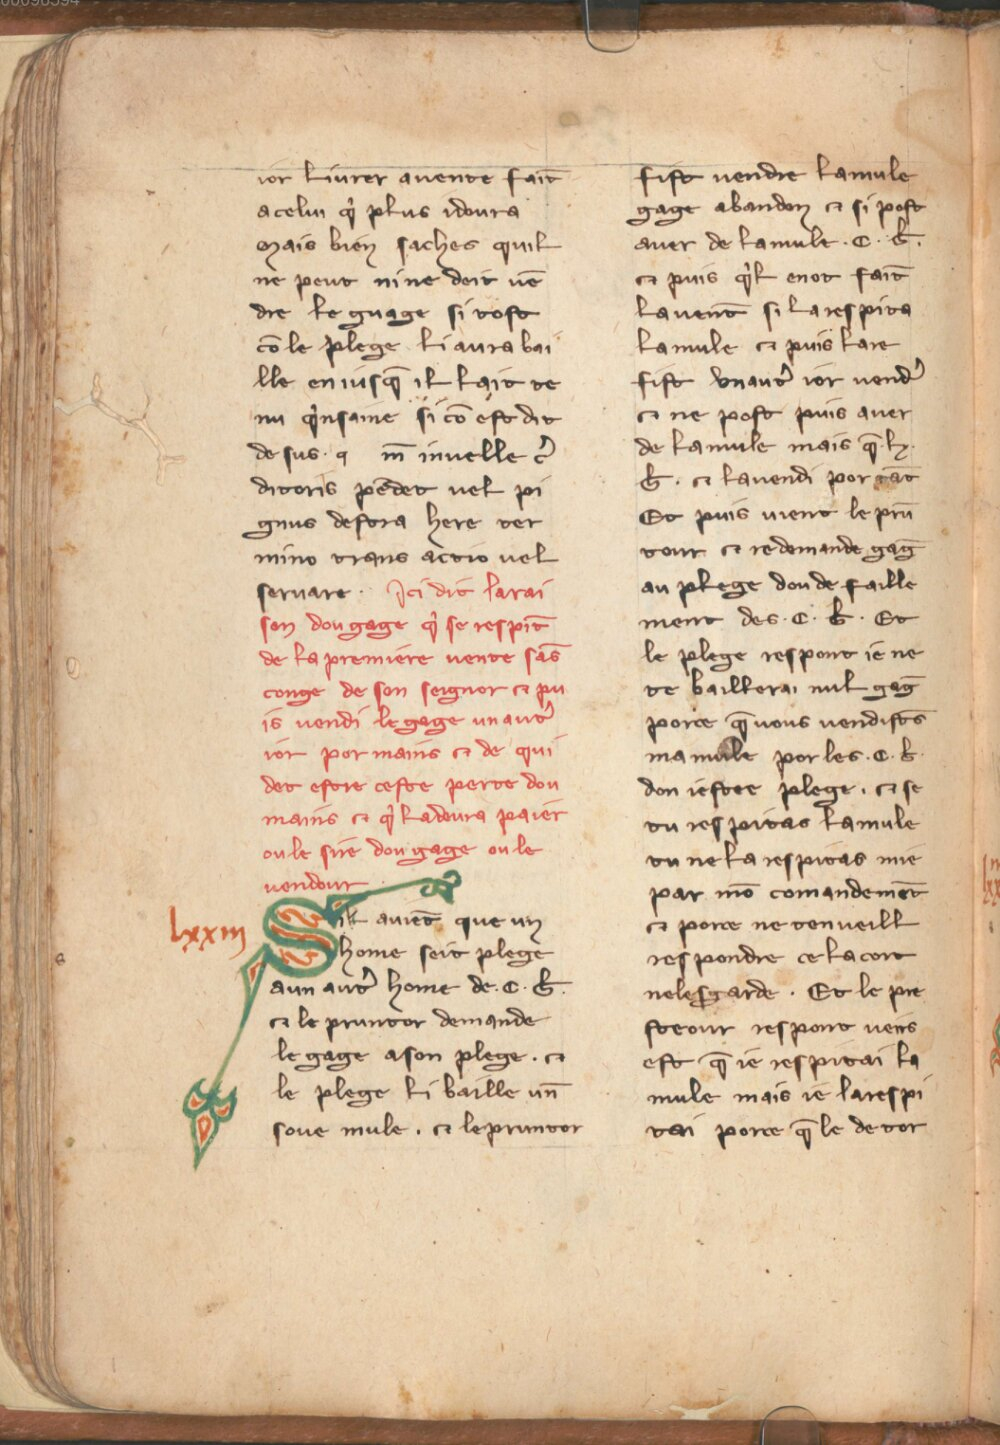 ior liurer auente fait̄
acelui q̇ plus idoura
Mais bien saches quil
ne peut nine deit uē
dre le guage si tost
cōle plege li aurabai
lle eniusq̄ il lait te
nu q̇nsaine si cō est dit
de sus. q m̄ inuelle c̓
ditoris pēdet uel pi
gnus destra here ter
mino trans actio uel
seruare. Ici dit larai
son dougage q̇ se respit̄
de la premiere uente sās
conge de son seignor ⁊ pu
is uendi legage unaut̓
ior por mains ⁊ de qui
det estre ceste perte dou
mains ⁊ q̇ ladoura paier
oule sire dougage oule
uendour
lxxiii
Sil auiēt que un
home seit plege
aun aut̓ home de .C. b̄.
⁊ le pruntor demande
legage ason plege. ⁊
le plege li baille un̄
soue mule. ⁊ lepruntor
fist uendre lamule
gage abandon ⁊ si post
auer de lamule .C. b̄.
⁊ puis q̇l enot fait̄
lauent̄ si larespita
lamule ⁊ puis lare
fist unaut̓ ior uend̓
⁊ ne post puis auer
de lamule mais q̄ lx.
b̄. ⁊ lauendi por tāt
Et puis uient le prū
tour ⁊ redemande gaḡ
au plege dondefaille
ment des .C. b̄. Et
le plege respont iene
te baillerai nul gaḡ
porce q̄uous uendistes
mamule por les .C. b̄.
don iestee plege. ⁊ se
tu respitas lamule
tu nela respitas mie
par mō comandemēt
⁊ porce ne tenueill
respondre ce lacort
nelesgarde. Et le pre
steour respont ueirs
est q̄ ie respitai la
mule mais ie larespi
tai porce q̄ le detor